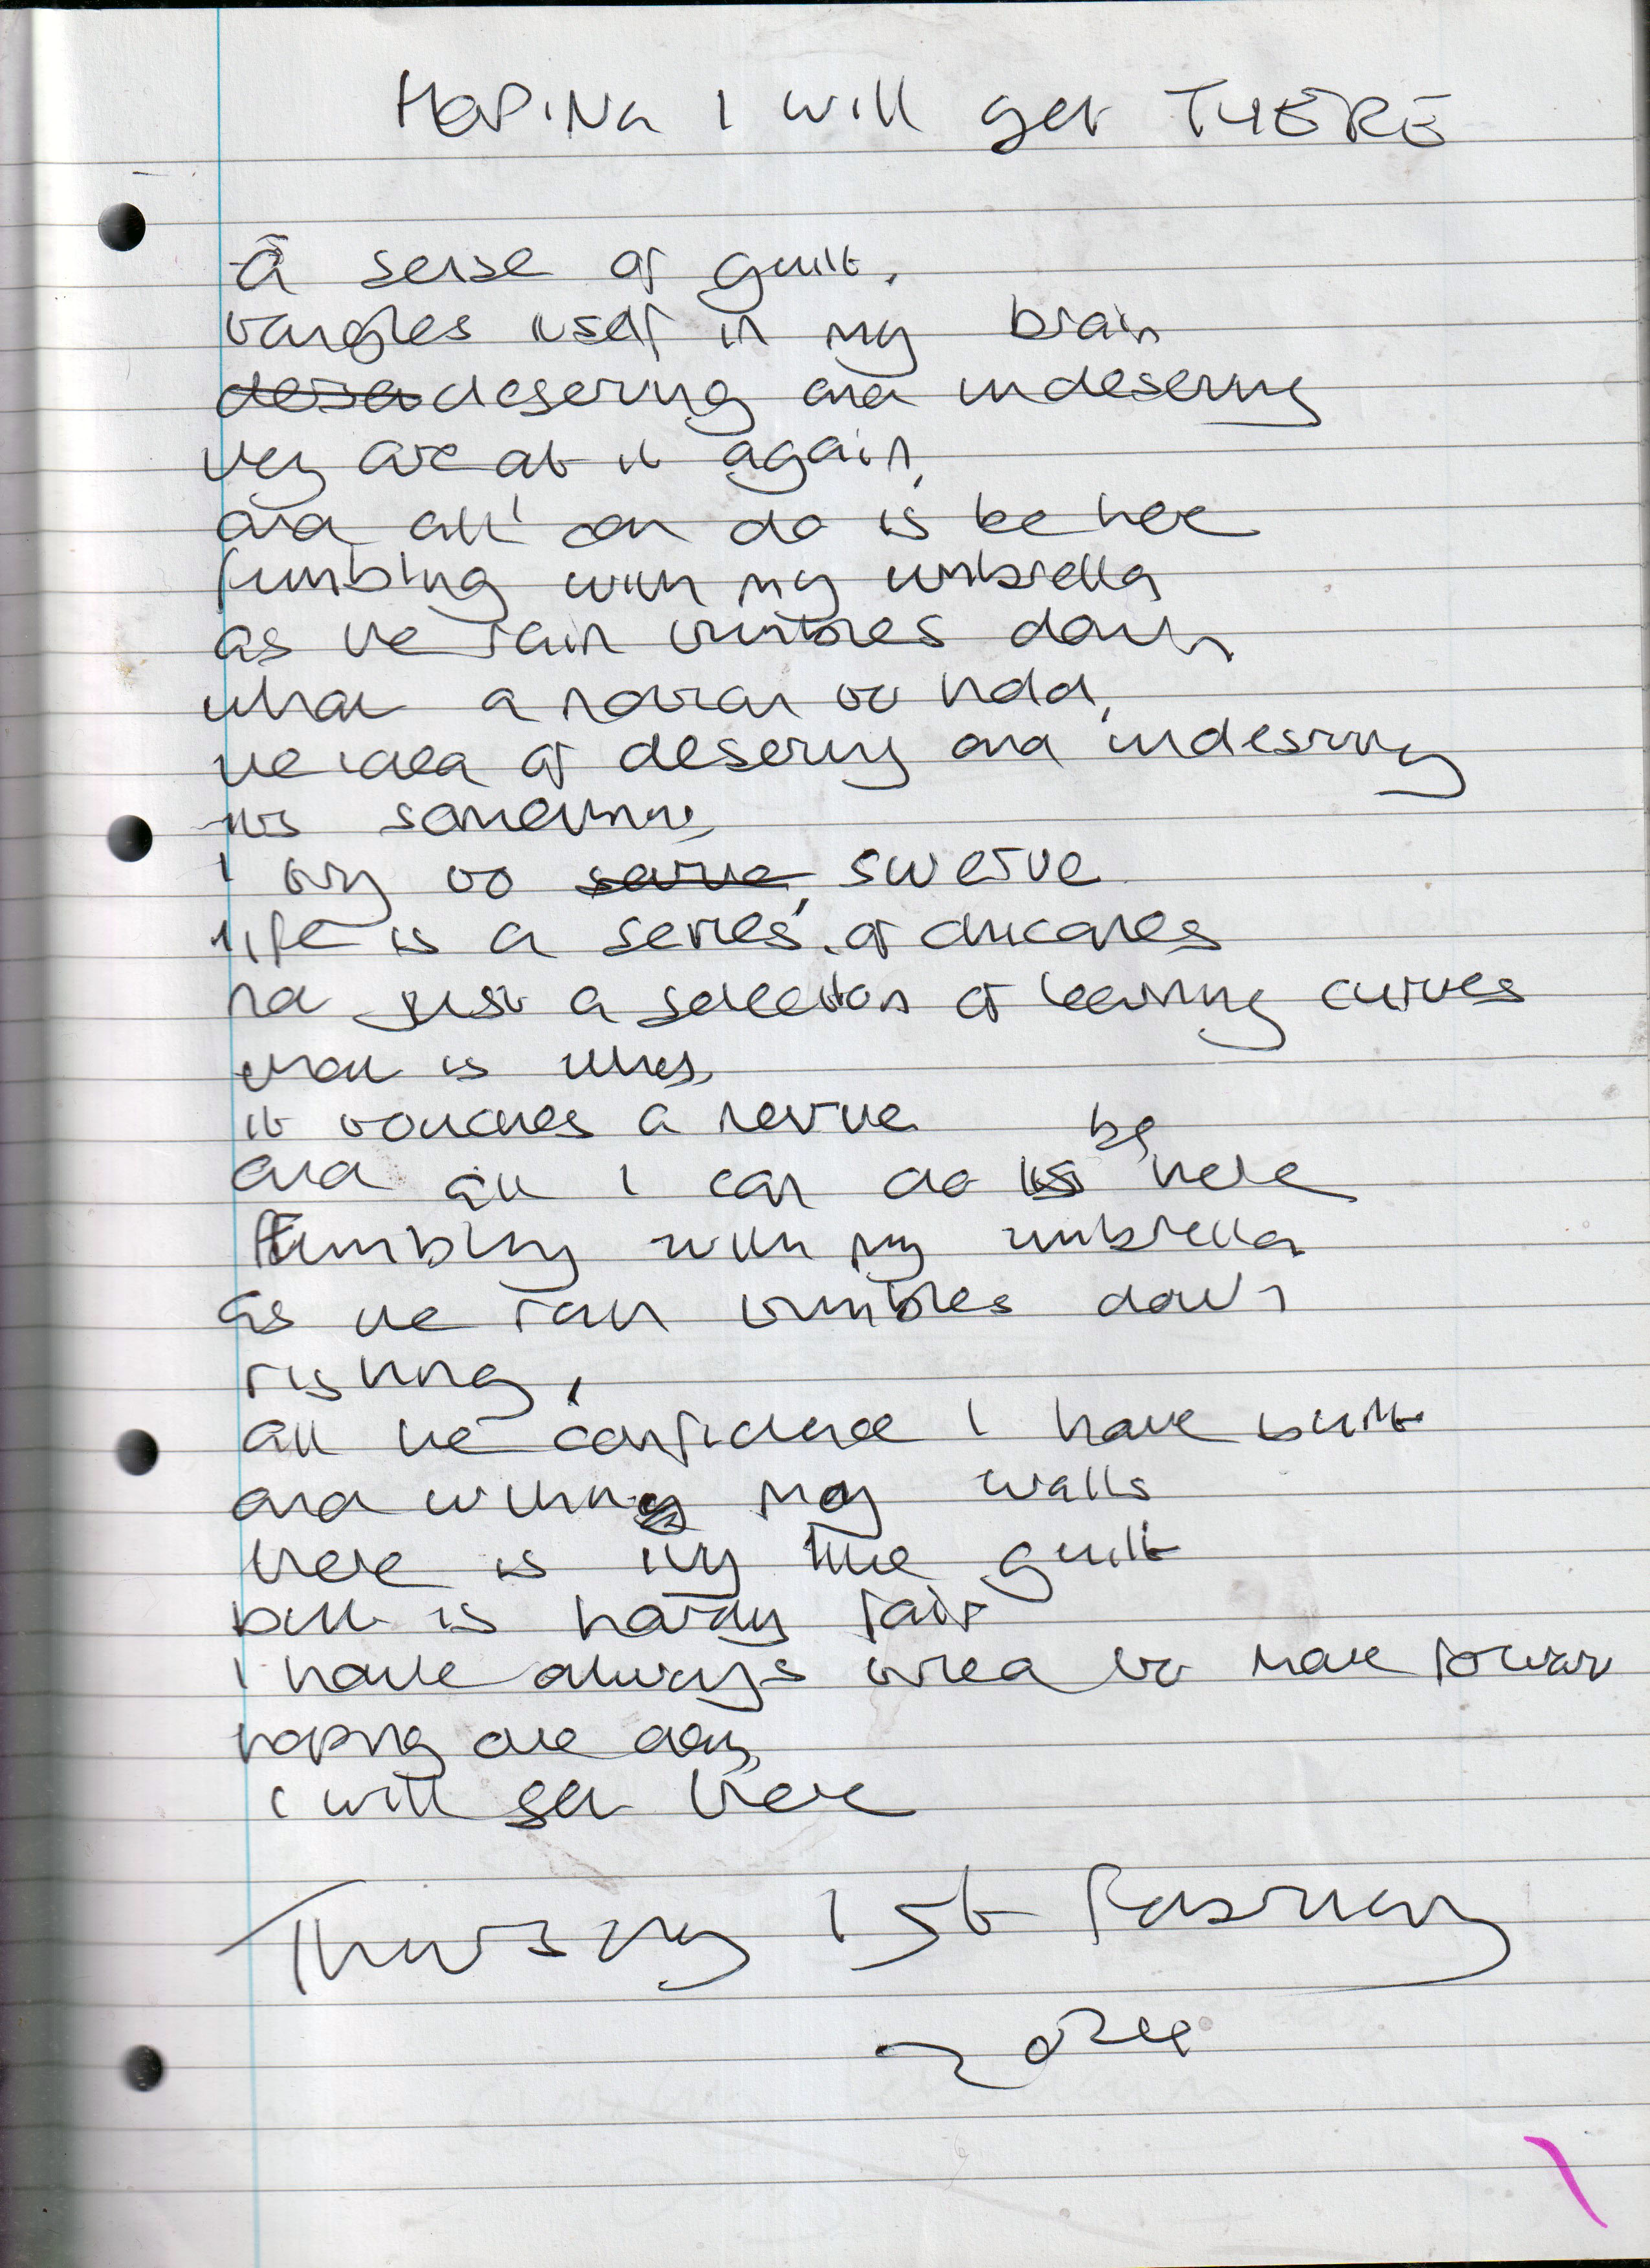 HOPING I will get THERE
A sense of guilt.
tangles itself in my brain
deserving and undeserving
they are at it again,
and all I can do is be here
fumbling with my umbrella
as the rain tumbles down
what a notion to hold,
the idea of deserving and undeserving
it's something
I try to serve, swerve
life is a series of chicanes
not just a selection of learning curves
what is this,
it touches a nerve
and all I can do is be here
fumbling with my umbrella
as the rain tumbles down
risking,
all the confidence I have built
and within my walls
there is ivy like guilt
but is hardly fair
I have always tried to move forward
hoping one day,
i will get there
Thursday 1st February
2024